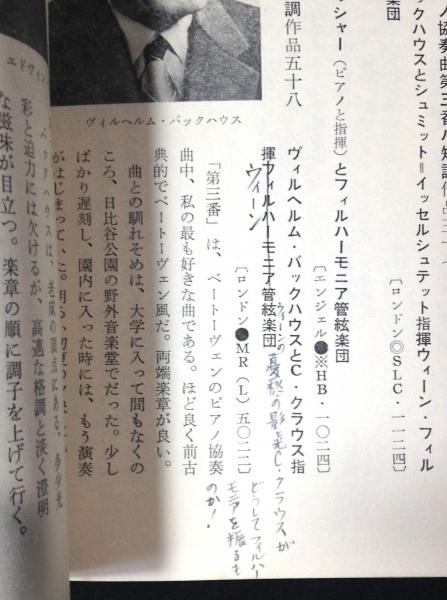 協奏曲第三番ハ短調作品三
ックハウスとシュミット＝イッセルシュテット指揮ウィーン・フィル
楽団
〔ロンドン◎SLC・一一二四〕
シャー（ピアノと指揮）とフィルハーモニア管絃楽団
〔エンジェル●※HB・一〇二四〕
調作品五十八
ヴィルヘルム・バックハウスとC・クラウス指
揮フィルハーモニア管絃楽団
ウィーン
〔ロンドン●MR（L）五〇二二〕
ウィーンの憂愁の影 C・クラウスが
どうしてフィルハー
モニアを振るも
のか！
ヴィルヘルム・バックハウス
「第三番」は、ベートーヴェンのピアノ協奏
曲中、私の最も好きな曲である。ほど良く前古
典的でベートーヴェン風だ。両端楽章が良い。
曲との馴れそめは、大学に入って間もなくの
ころ、日比谷公園の野外音楽堂でだった。少し
ばかり遅刻し、園内に入った時には、もう演奏
がはじまっていた。明るい初夏の
エドウィン
バックハウスは、老成の頂点にある。多少光
彩と迫力には欠けるが、高邁な格調と淡く澄明
な滋味が目立つ。楽章の順に調子を上げて行く。